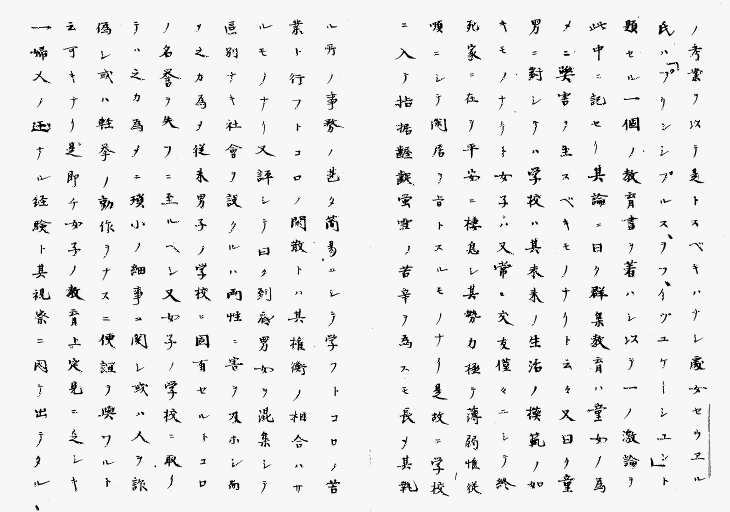 ノ考業ヲ以テ是トスベキハナシ處女セウエル
氏ハ「プリンシプルス、ヲフ、イヅユケーシユン」ト
題セル一個ノ教育書ヲ著ハシ以テ一ノ激論ヲ
此中ニ記セリ其論ニ曰ク群集教育ハ童女ノ為
メニ弊害ヲ生スベキモノナリト云々又曰ク童
男ニ對シテハ学校ハ其未来ノ生活ノ模範ノ如
キモノナリト女子ハ又常ニ交友僅々ニシテ終
死家ニ在テ平安ニ棲息シ其勢力極テ薄弱惟従
順ニシテ閑居ヲ旨トスルモノナリ是故ニ学校
ニ入テ拮据齷齪蛍雪ノ苦辛ヲ為スモ長メ其執
ル所ノ事務ノ甚タ簡易ニシテ学フトコロノ苦
業ト行フトコロノ閑散トハ其権衡ノ相合ハサ
ルモノナリ又評シテ曰ク到底男女ヲ混集シテ
區別ナキ社會ヲ設クルハ両性ニ害ヲ及ホシ而
ヲ之カ為メ従来男子ノ学校ニ固有セルトコロ
ノ名誉ヲ失フニ至ルヘシ又女子ノ学校ニ取リ
テハ之カ為メニ瑣小ノ細事ニ関シ或ハ人ヲ詐
偽シ或ハ軽挙ノ動作ヲナスニ便誼ヲ與フルト
云可キナリ是即チ女子ノ教育上定見ニ乏シキ
一婦人ノ迂ナル経験ト其視察ニ因テ出テタル